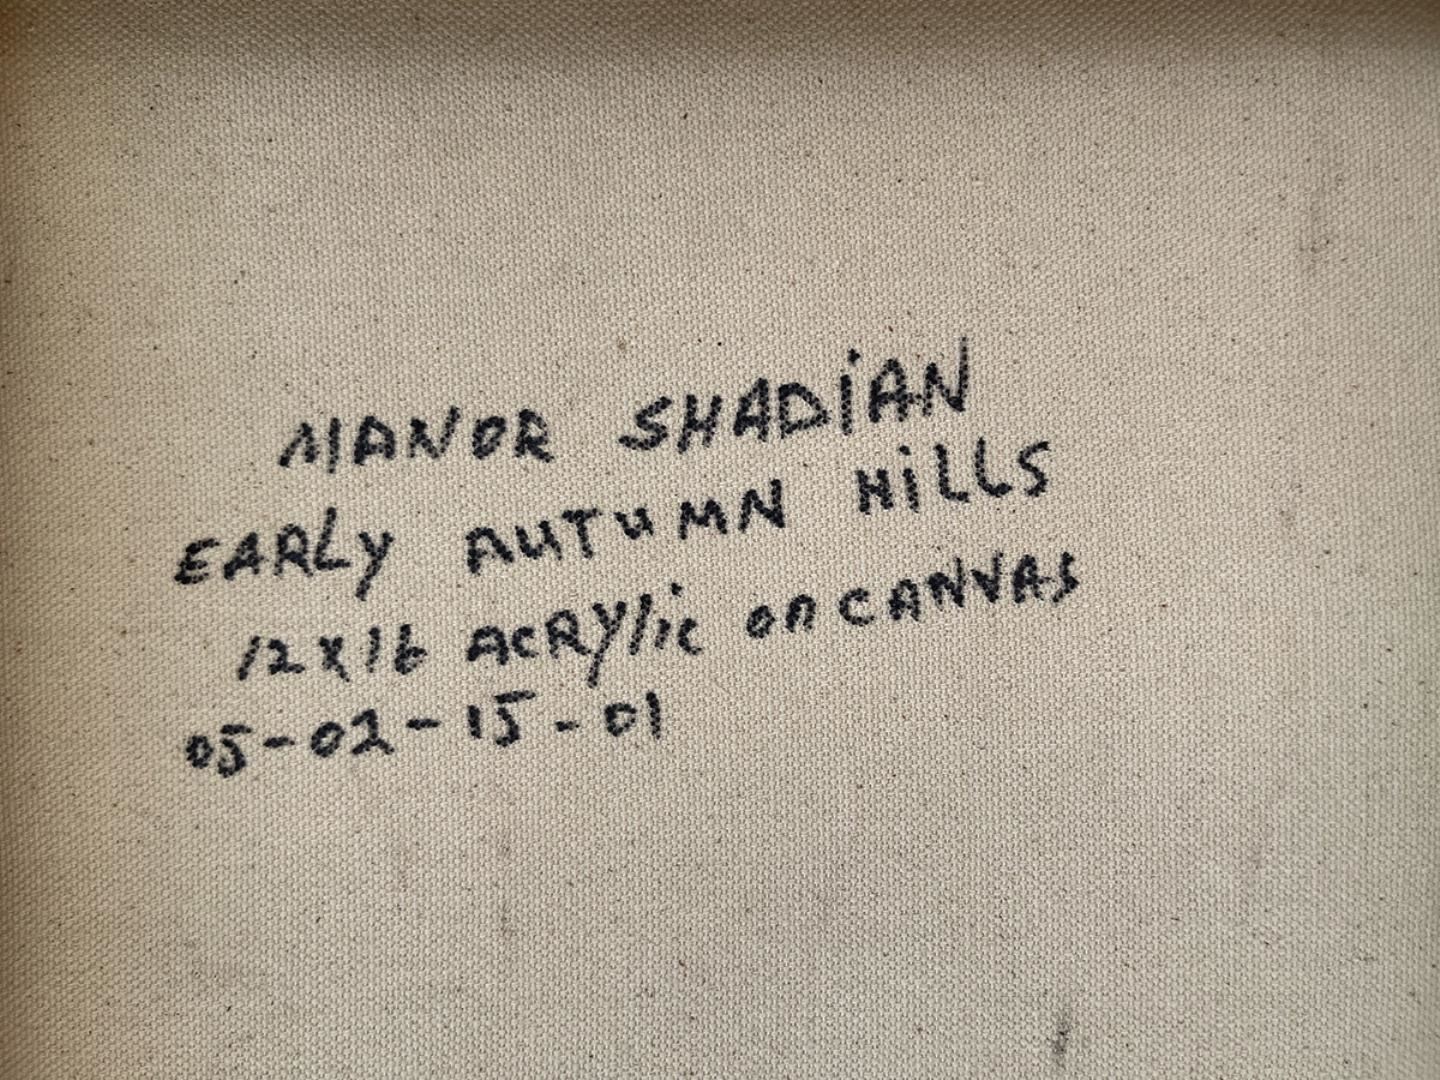 MANOR SHADiAN
EARLy AUTUMN HiLLS
12x16 ACRYlic on CANVAS
05-02-15-01